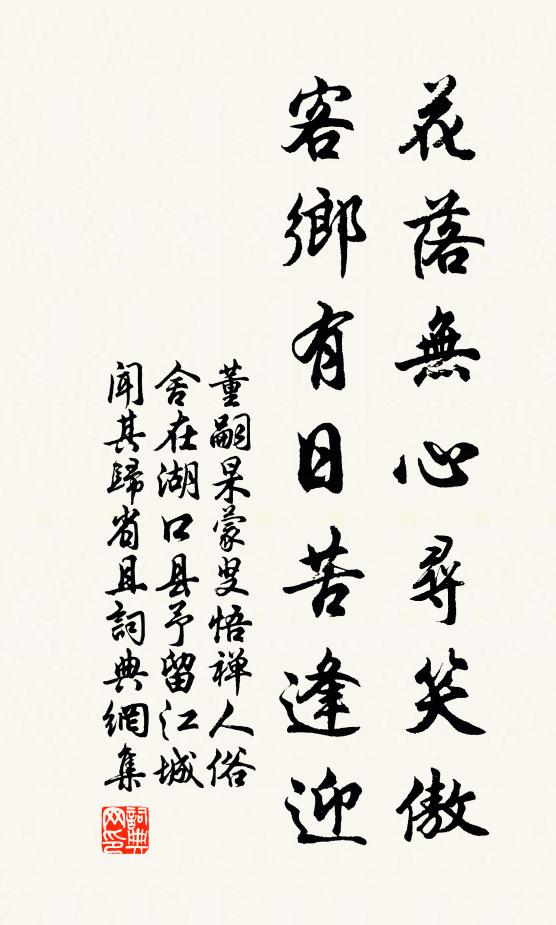 花落無心尋笑傲
客鄉有日苦逢迎
董嗣杲蒙叟悟禅人俗
舍在湖口县予留江城
闻其歸省且詞典網集
詞典网印